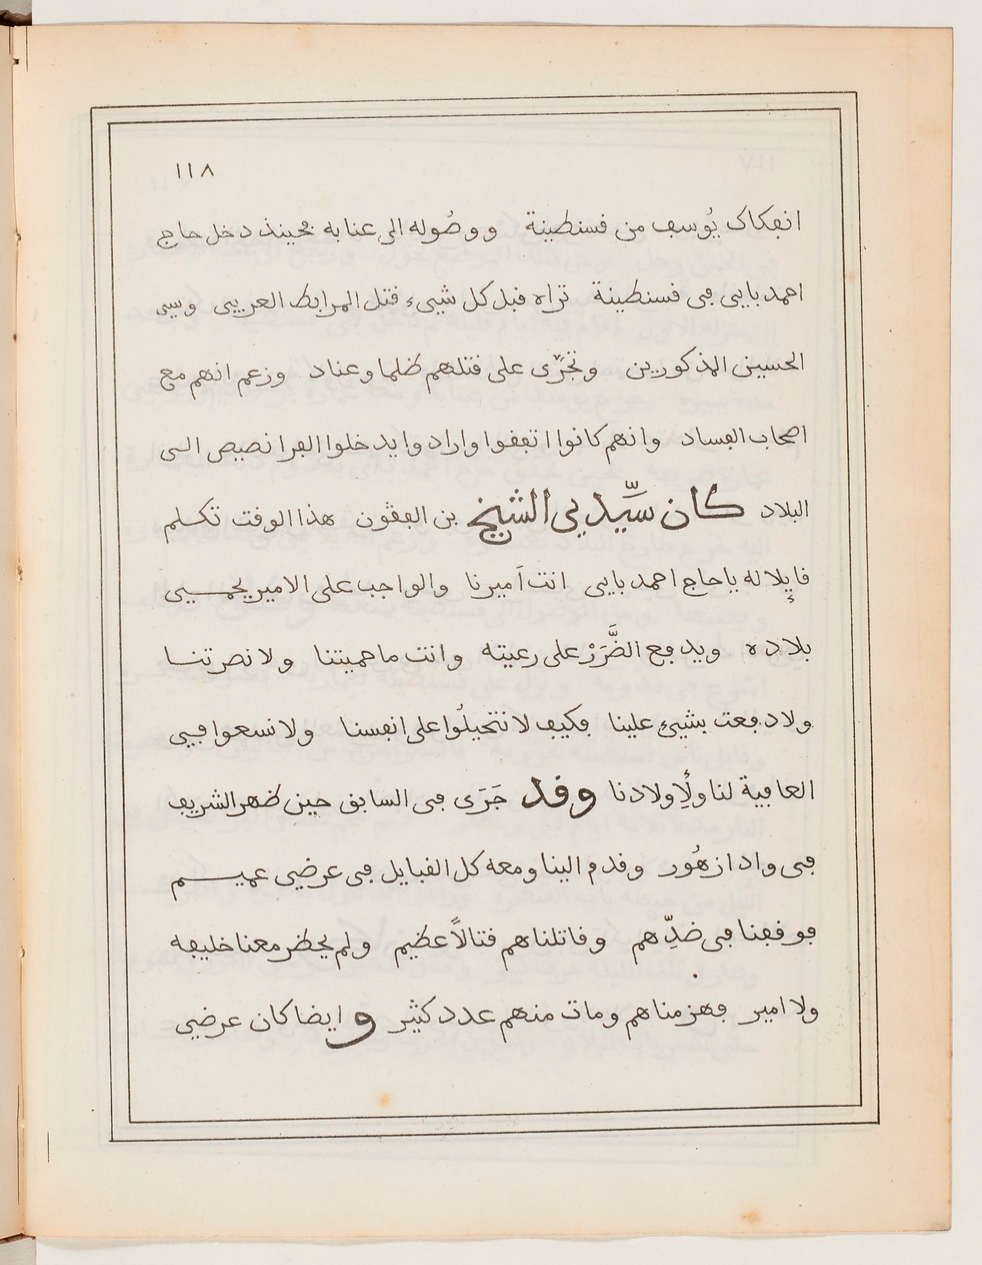 ١١٨
انفكاك يُوسف من قسنطينة ووصُوله الى عنابه فحينئذ دخل حاج
احمد بايي في قسنطينة تراه قبل كل شييء قتل المرابط العريبي وسي
الحسين المذكورين وتجرّى على قتلهم ظلما وعناد وزعم انهم مع
اصحاب الفساد وانهم كانوا اتفقوا وارادوا يدخلوا الفرانصيص الى
البلاد كان سيّدي الشيخ بن الفقون هذا الوقت تكلم
قايلا له يا حاج احمد بايي انت آميرنا والواجب على الامير يحميي
بلاده ويدفع الضَّرَرْ على رعيته وانت ما حميتنا ولا نصرتنا
ولا دفعت بشييء علينا فكيف لا نتحيلُوا على انفسنا ولا نسعوا فيي
العافية لنا ولأِولادنا وقد جَرَى في السابق حين ظهر الشريف
في واد ازهُور وقدم الينا ومعه كل القبايل في عرضي عميم
فوقفنا في ضدِّهم وقاتلناهم قتالاً عظيم ولم يحظر معنا خليفه
ولا امير فهزمناهم ومات منهم عدد كثير وايضا كان عرضي